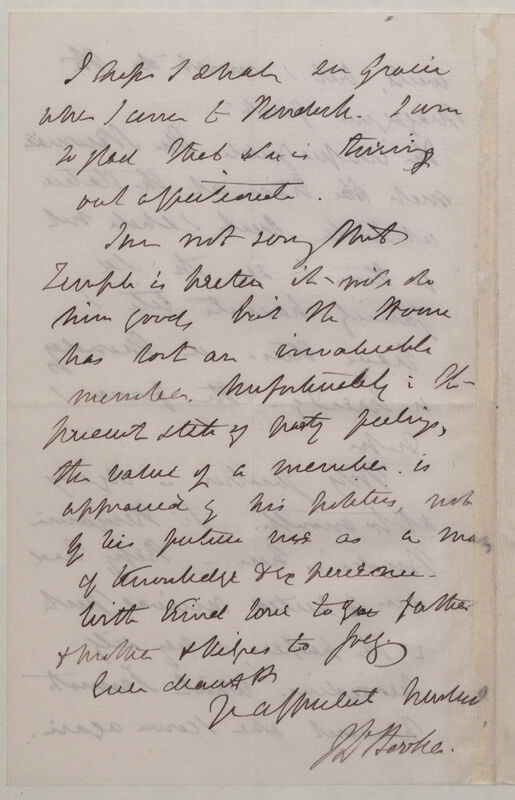 I hope I shall see Gracie
when I come to Pendock. I am
so glad that she is turning
out affectionate.
I am not sorry that
Temple is beaten it will do
him good, but the House
has lost an invaluable
member. Unfortunately in the
present state of party feelings,
the value of a member is
approved by his politics, not
of his future use as a man
of knowledge & experience.
With kind love to father
& mother & kisses to
Ever dearest
Yr affectionate husband
J D Hooker.